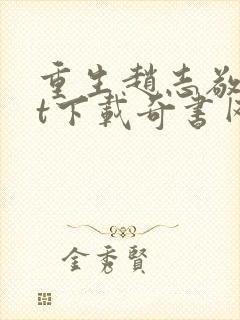 重生趙志敬
t下載奇書
金秀賢